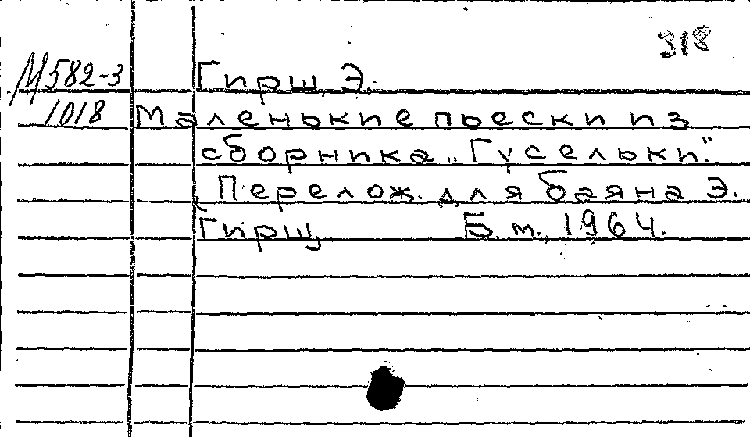 318
М582-3 Гирш, Э.
1018 Маленькие пьески из
сборника „Гусельки".
Перелож. для баяна Э.
Гирш. Б. м., 1964.